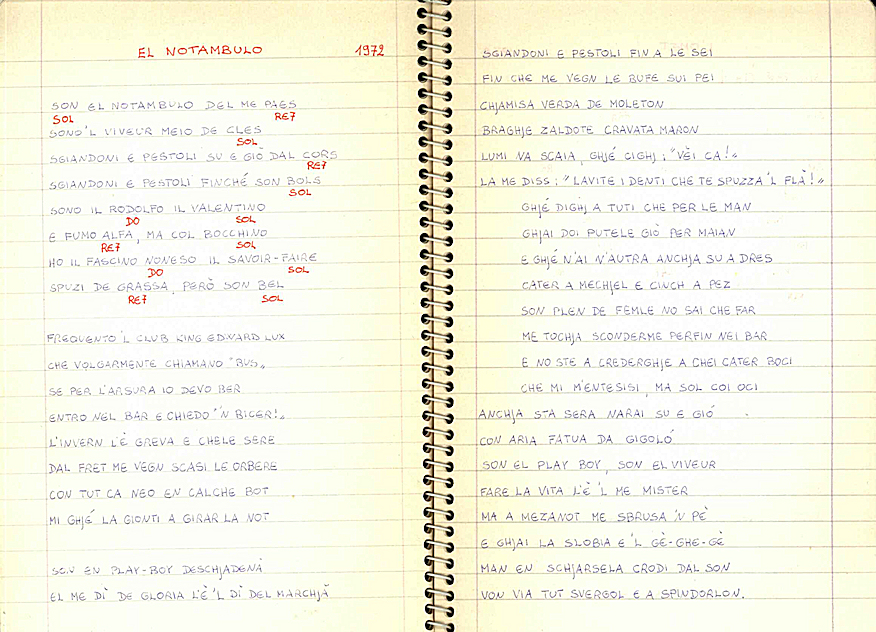 EL NOTAMBULO 1972
SON EL NOTAMBULO DEL ME PAES
SOL RE7
SONO'L VIVEUR MEIO DE CLES
SOL
SGIANDONI E PESTOLI SU E GIÒ DAL CORS
RE7
SGIANDONI E PESTOLI FINCHÉ SON BOLS
SOL
SONO IL RODOLFO IL VALENTINO
DO SOL
E FUMO ALFA, MA COL BOCCHINO
RE7 SOL
HO IL FASCINO NONESO IL SAVOIR-FAIRE
DO SOL
SPUZI DE GRASSA, PERÒ SON BEL
RE7 SOL
FREQUENTO 'L CLUB KING EDWARD LUX
CHE VOLGARMENTE CHIAMANO "BUS„
SE PER L'ARSURA IO DEVO BER
ENTRO NEL BAR E CHIEDO "'N BICER!„
L'INVERN L'È GREVA E CHELE SERE
DAL FRET ME VEGN SCASI LE ORBERE
CON TUT CA NEO EN CALCHE BOT
MI GHJÉ LA GIONTI A GIRAR LA NOT
SON EN PLAY-BOY DESCHJADENÀ
EL ME DÌ DE GLORIA L'È 'L DÌ DEL MARCHJÀ
SGIANDONI E PESTOLI FIN A LE SEI
FIN CHE ME VEGN LE BUFE SUI PEI
CHJAMISA VERDA DE MOLETON
BRAGHJE ZALDOTE CRAVATA MARON
LUMI NA SCAIA, GHJÉ CIGHJ: "VÈI CA!„
LA ME DISS: "LAVITE I DENTI CHE TE SPUZZA 'L FLÀ!„
GHJÉ DIGHJ A TUTI CHE PER LE MAN
GHJAI DOI PUTELE GIÒ PER MAIAN
E GHJÉ N'AI N'AUTRA ANCHJA SU A DRES
CATER A MECHJEL E CINCH A PEZ
SON PLEN DE FEMLE NO SAI CHE FAR
ME TOCHJA SCONDERME PERFIN NEI BAR
E NO STE A CREDERGHJE A CHEI CATER BOCI
CHE MI M'ENTESISI, MA SOL COI OCI
ANCHJA STA SERA NARAI SU E GIÓ
CON ARIA FATUA DA GIGOLÓ
SON EL PLAY BOY, SON EL VIVEUR
FARE LA VITA L'È 'L ME MISTER
MA A MEZANOT ME SBRUSA 'N PÈ
E GHJAI LA SLOBIA E 'L GÈ-GHE-GÈ
MAN EN SCHJARSELA CRODI DAL SON
VON VIA TUT SVERGOL E A SPINDORLON.